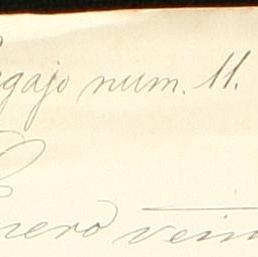 Legajo num. 11.
Enero vein